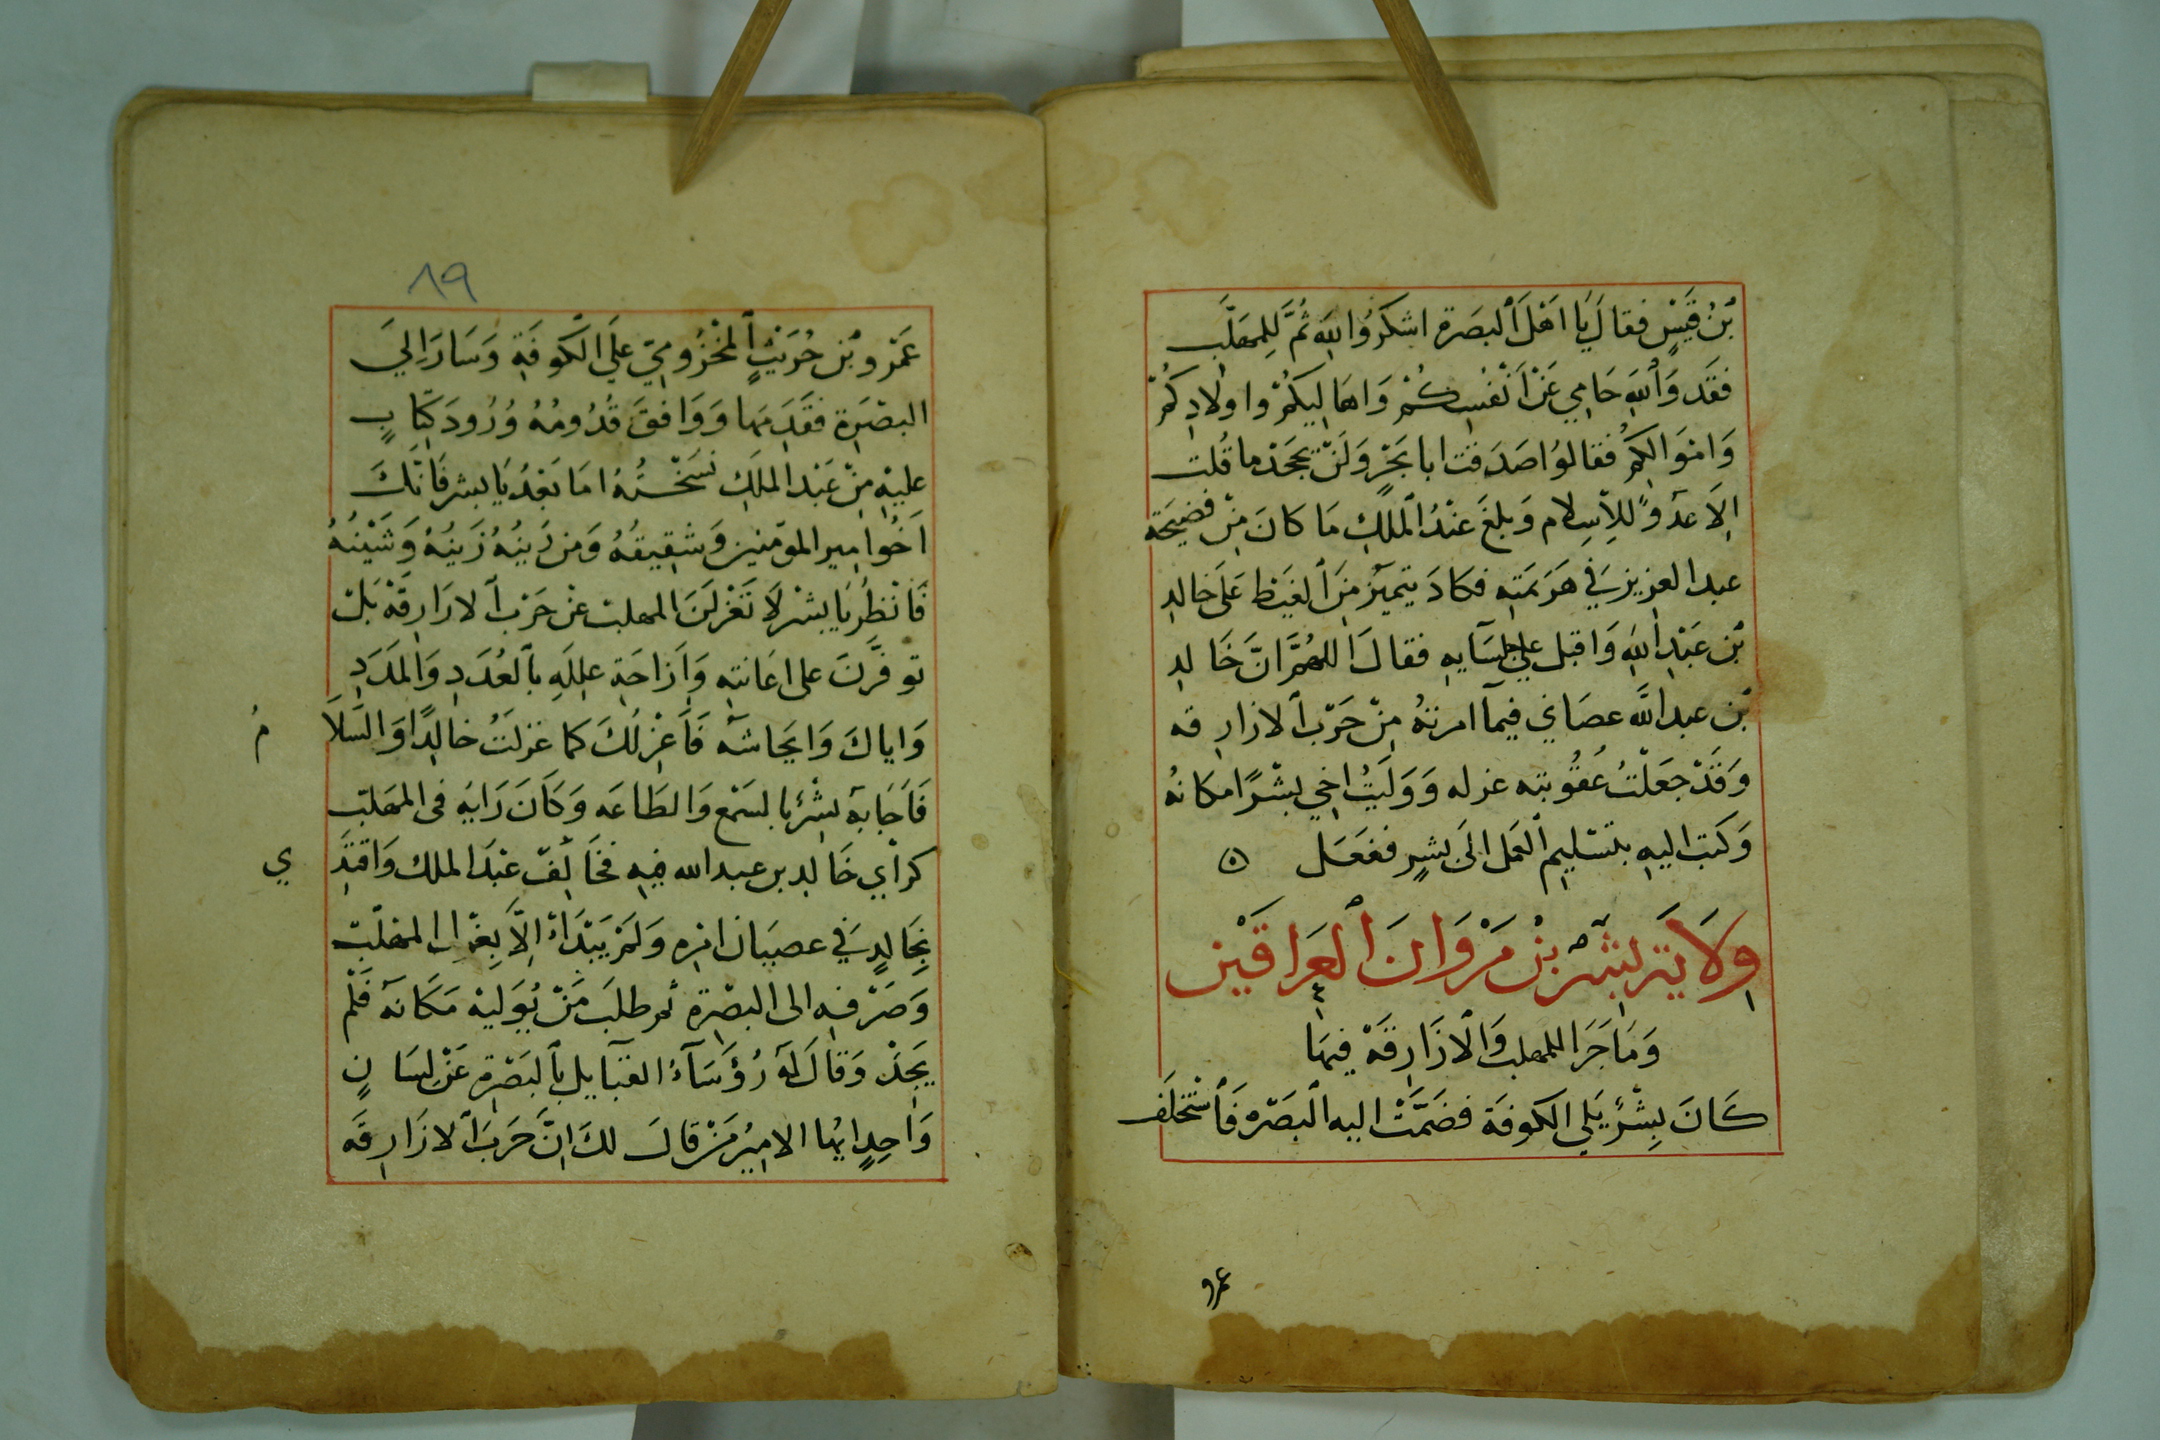 بْنُ قَيْسٍ فقالَ يَا اَهْلَ اَلبصَرة اشكرُوا للهِ ثُمَّ لِلمهَلَّب
فقَد وَاَللهِ حَامي عَنْ اَنْفسِكُمْ وَاهَاليكُمْ واولادِكُمْ
وَامْوَالِكُمْ فقالوُا صَدَقت ابا بَحْرٍ وَلَنْ يجحَدْ ما قُلت
اِلَا عدُوٌ للاِسِلام وَبلغَ عبْدُ اَلملكِ مَا كانَ مِنْ فضيحَة
عبد العزيز في هَزيمَتِه فكادَ يتميَّز مِنَ اَلغَيظ عَلَى خالدِ
بْن عَبْدِ اللهِ وَاقبل علي جلسَآيهِ فقالَ اللهُمَّ اِنَّ خَالدِ
بْن عبد اللَّه عصَاني فيمآ امرتهُ مِنْ حَرْب اَلازارِقه
وَقَدْ جعَلْتُ عقُوبته عزله وَوَليتُ اخِي بشْرًا مكانهُ
وَكَتب اليهِ بتسْليمِ اَلعَمل الَى بشرٍ ففعَل ۞
وِلَايَة بِشْر بْنْ مَرْوَانَ اَلعَرَاقَيْن
وَمَا جَرَا للمهلب وَاَلازَارِقَةْ فيهَا
كَانَ بِشْرٌ يَلي الكوفَة فضَمَّتْ اليه اَلبصَرْه فَاَسْتخلَف
عمرو
٨٩
عَمْرو بْن حُرَيْثٍ اَلمخْزُومِيّ عَلَي الكوفَةِ وَسَارَ اِلَيَ
البصْرَة فقَدِمَهَا وَوَافقَ قدُومُهُ وُرُودَ كتَابٍ
عليْهِ مِنْ عَبْد الملَكِ نسَخْتُهُ امَا بَعْدُ يَا بشر فَاَنّكَ
اَخُوا اَمير الموّمنين وَشقِيقهُ وَمن زَينهُ زَينهُ وَشَيْنُهُ شَيْنُهُ
فَانْظُر يَا بشْر لَا تَعْزلَنَ المهلبْ عنْ حَرْب اَلازارِقَةْ بَلْ
توفَّرَنَ على اعَانتهِ وَاِزاحَةِ عللهِ باَلعُدَدِ وَاَلمدَدِ
وَاياكَ وَايحاشهُ فَاَعزلكَ كما عَزلتُ خالدًا وَالسَّلاَ
مُ
فَاَجَابهَ بشْرٌ بالسَمْع وَالطَاعَه وَكَانَ رَايهِ في المهَلبّ
كراْي خَالدِ بن عبد الله فيهِ فخَالَفَ عَبْدَ الملك وَاقتدَ
ي
بخَالدٍ في عصيَان امرِه وَلمْ يَبتَدَاْ اِلَّا بعَزْلِ المهَلّب
وَصَرْفهِ الى البصْرة ثم طلبَ مَنْ يُوَليهْ مَكَانهَ فَلَمْ
يَجدْ وَقالَ لهَ رُؤَسَآءُ القبَآيل بِاَلبَصْرة عَنْ لسَانٍ
وَاحدٍ ايهُا الامِيرُ مَنْ قالَ لكَ اِنَّ حَرَبَ اَلازَارِقَه